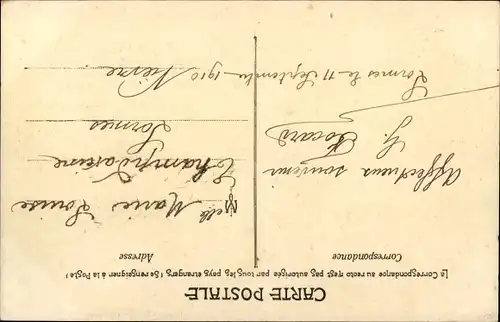 CARTE POSTALE
(La Correspondance au recto n'est pas autorisée par tous les pays étrangers (Se renseigner à la Poste)
Correspondance
Adresse
Affectueux souvenir
G. Bocard
Lormes le 11 Septembre 1910
Melle Marie Louise
Champdavoine
Lormes
Nièvre